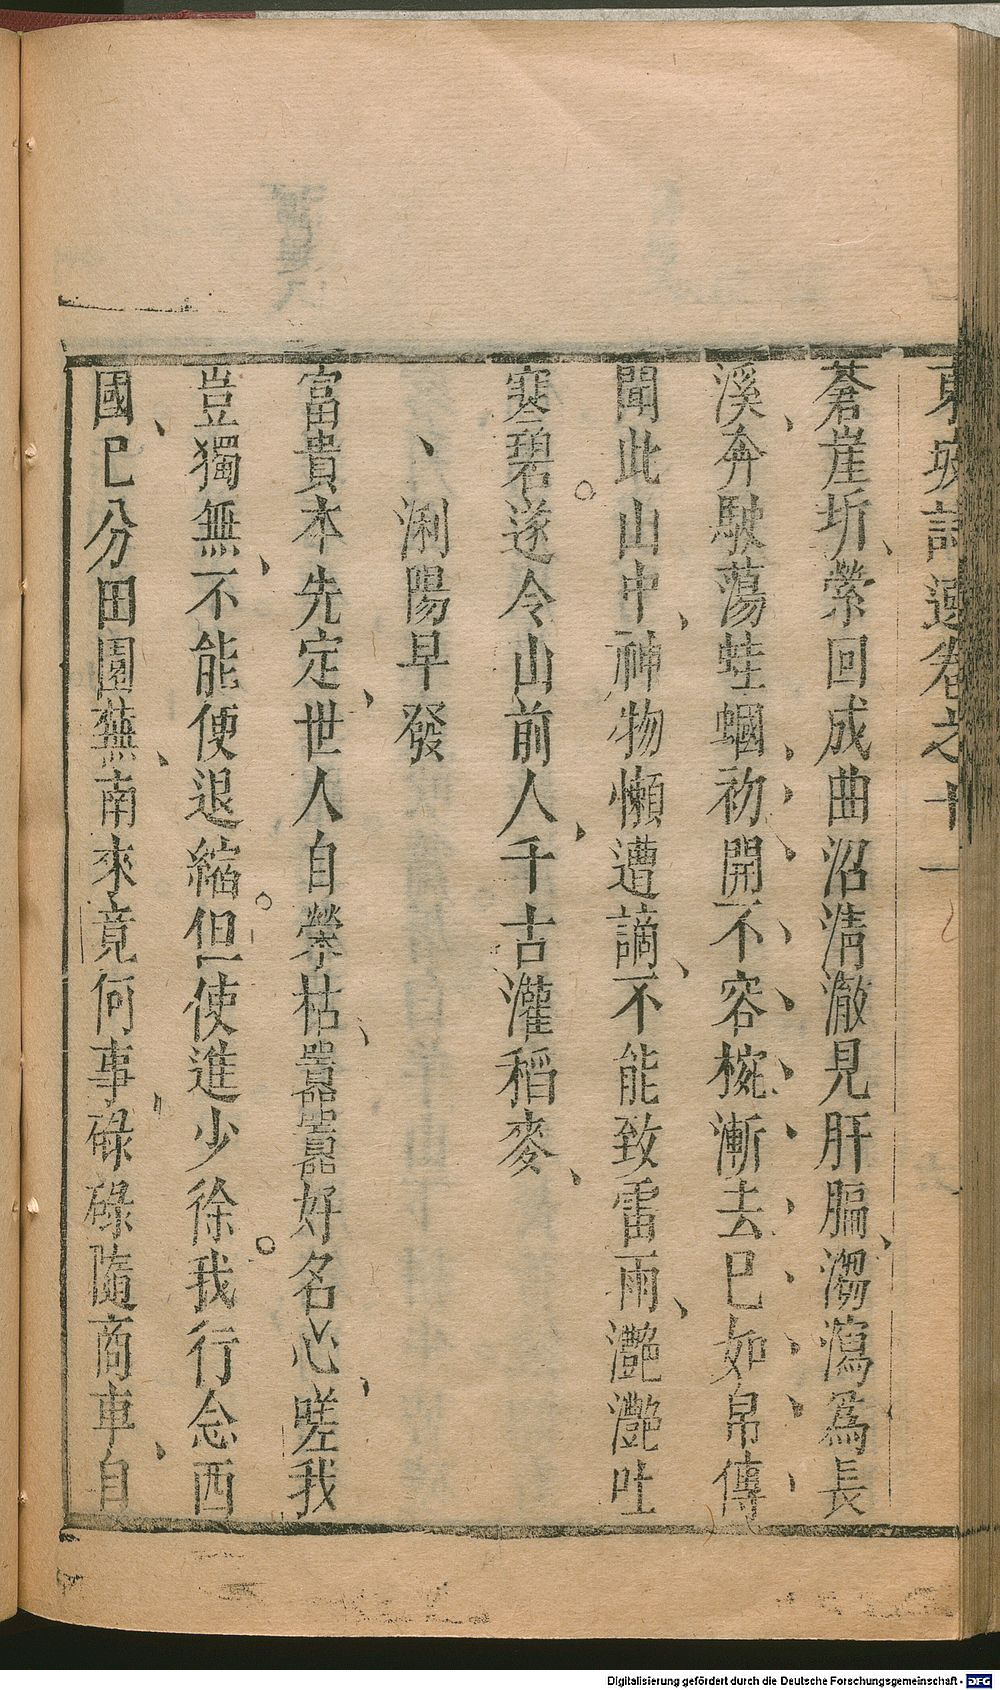 東坡詩選卷之十一
蒼崖圻縈回成曲沼清澈見肝膈瀉為長
溪奔駛蕩蛙蟈初開不容椀漸去已如帛傳
聞此山中神物懶遭謫不能致雷雨灧灧吐
寒碧遂令山前人千古灌稻麥
渦陽早發
富貴本先定世人自榮枯囂囂好名心嗟我
豈獨無不能便退縮但使進少徐我行念西
國已分田園蕪南來竟何事碌碌隨商車自
Digitalisierung gefördert durch die Deutsche Forschungsgemeinschaft - DFG